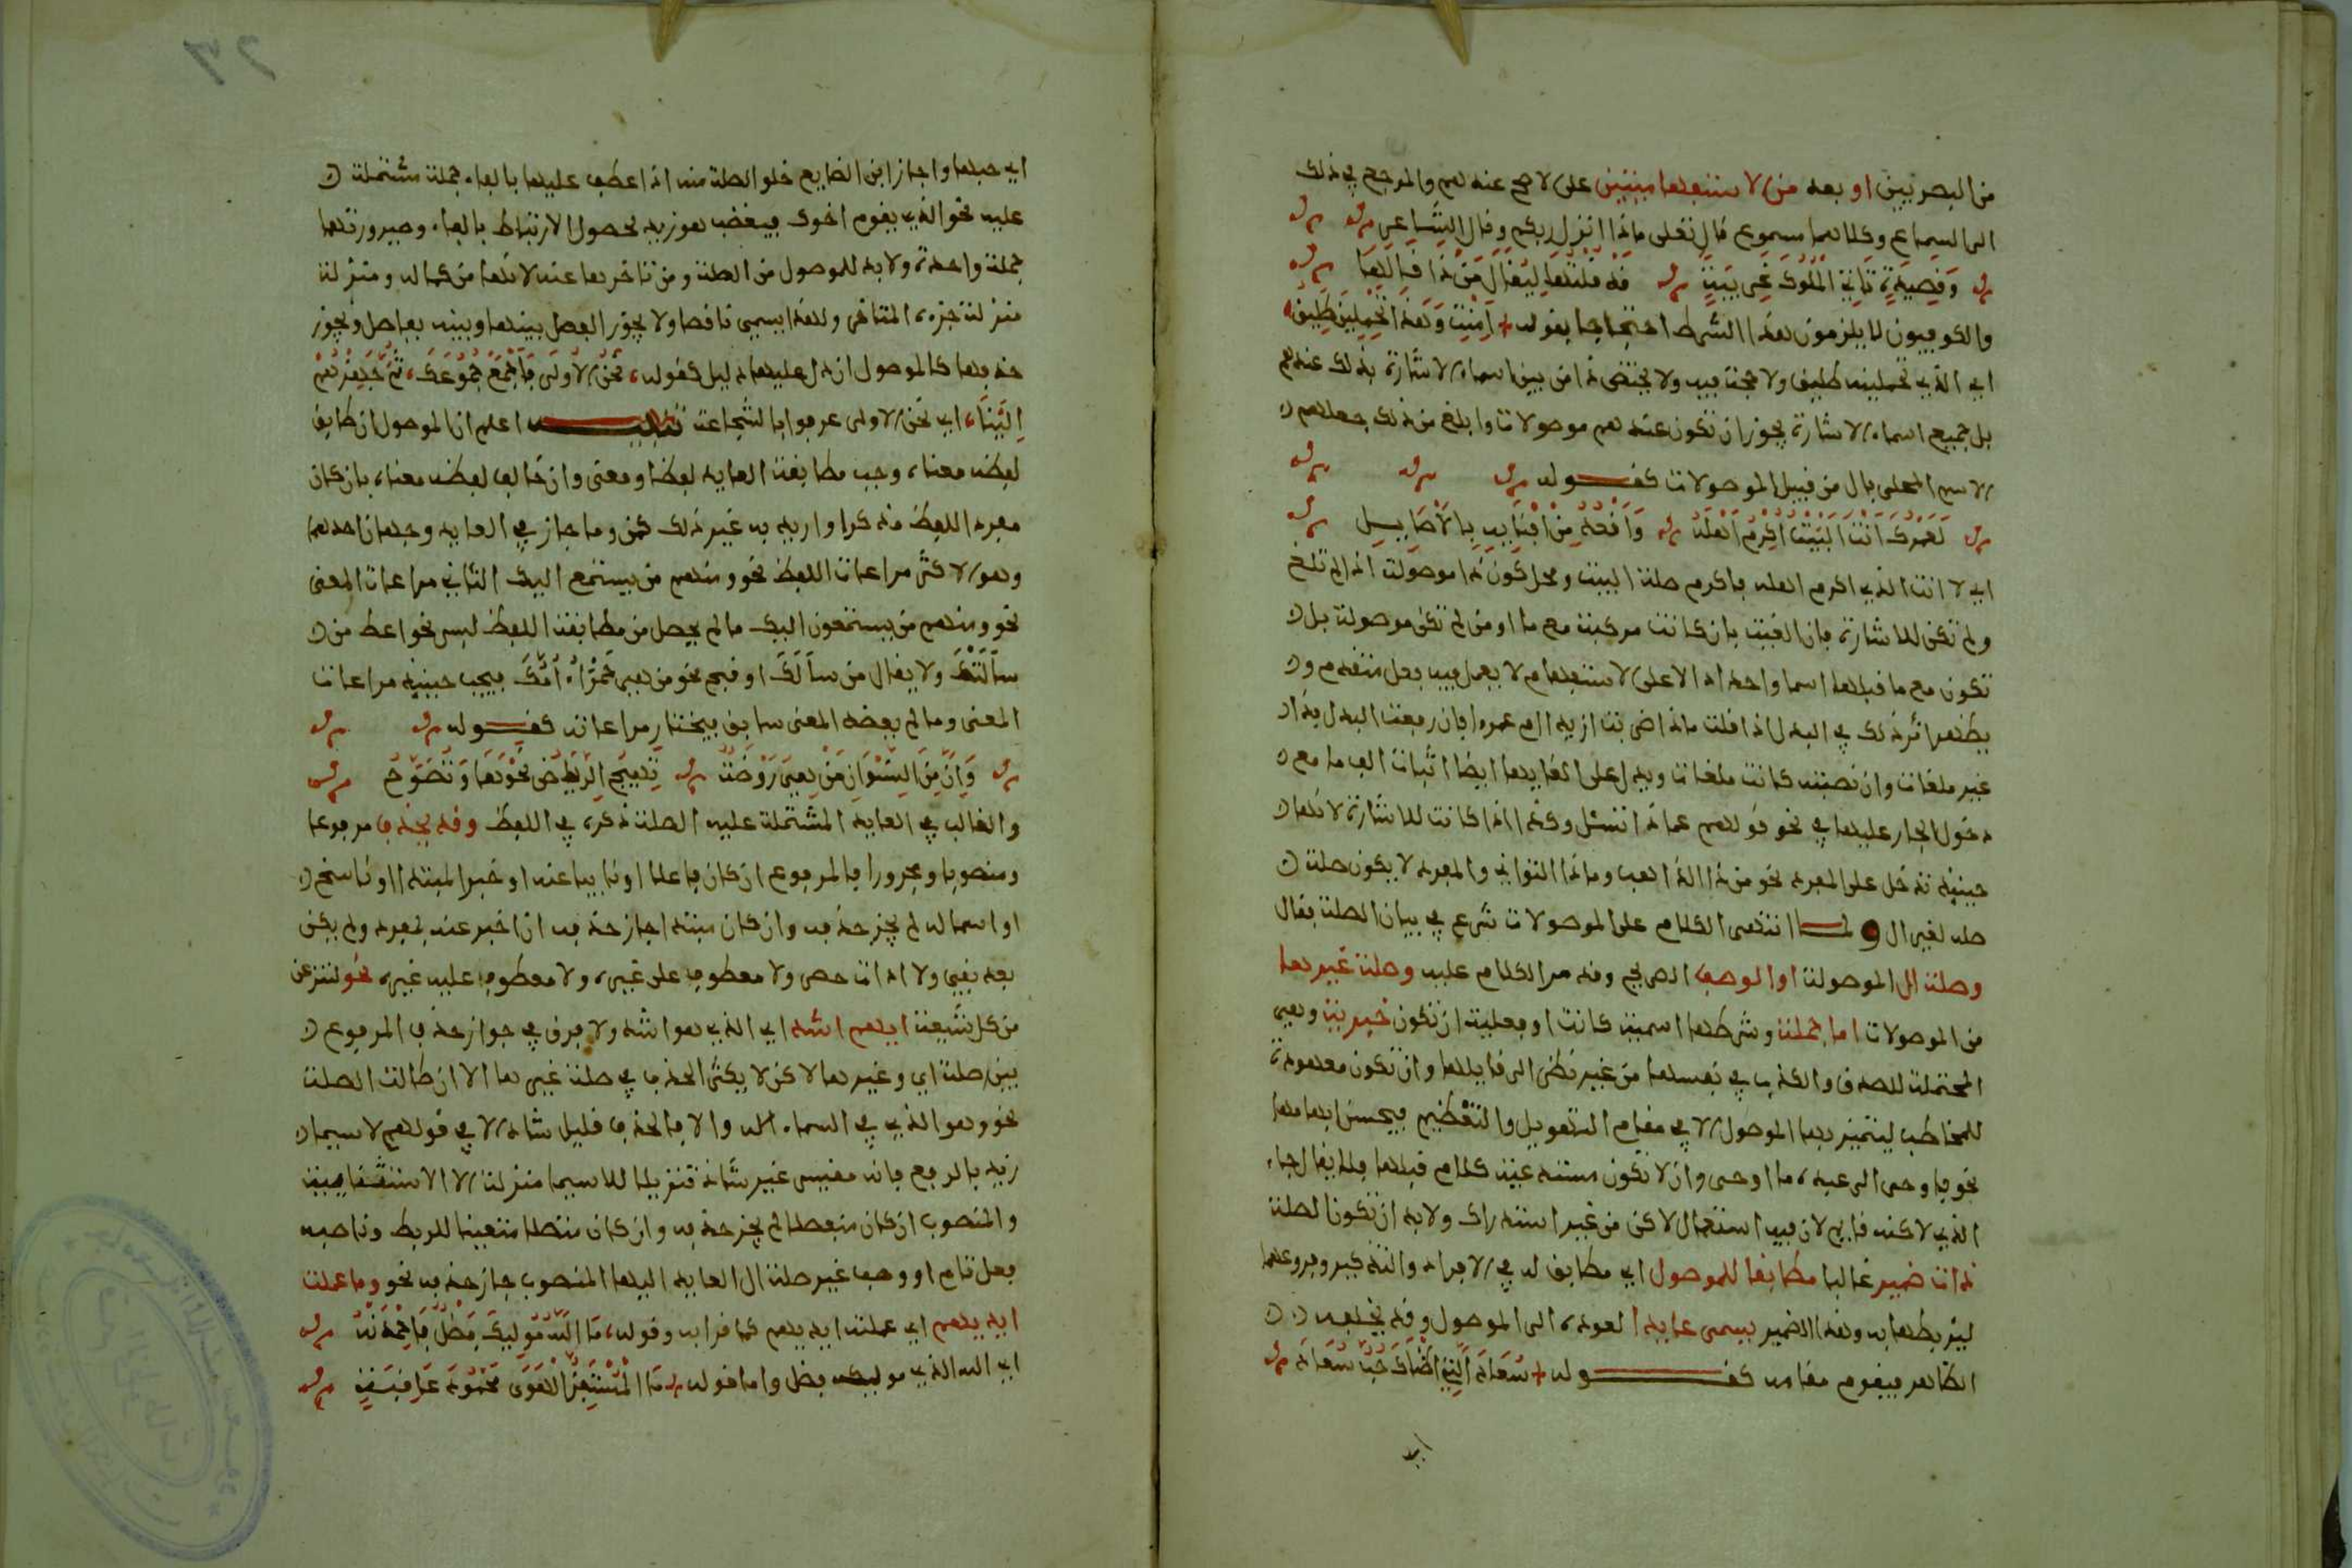 من البصريين او بعد من الاستفهامينين على الاصح عندهم والمرجح في ذلك
الى السماع وكلاهما مسموع قال تعلى ماذا انزل ربكم وقال الشاعر
وَقَصِيدَةٍ تَاتِي الْمُلُوكَ غَرِيبَةٍ قَدْ قُلْتُهَا لِيُقَالَ مَنْ ذَا قَالَهَا
والكوفيون لا يلزمون هذا الشرط احتجاجا بقوله أَمِنْتِ وَهَذَا تَحْمِلِينَ طَلِيقُ
اي الذي تحملينه طليق ولا حجة فيه ولا تختص ذا من بين اسماء الاشارة بذلك عندهم
بل جميع اسماء الاشارة يجوز ان تكون عندهم موصولات وابلغ من ذلك جعلهم
الاسم المحلى بال من قبيل الموصولات كقوله
لَعَمْرُكَ أَنْتَ الْبَيْتُ أُكْرِمُ أَهْلَهُ وَأَقْعُدُ مِنْ أَفْيَائِهِ بِالْأَصَائِلِ
اي لانت الذي اكرم اهله فاكرم صلة البيت ومحل كون ذا موصولة اذا لم تلغ
ولم تكن للاشارة فان الغيت بان كانت مركبة مع ما او من لم تكن موصولة بل
تكون مع ما قبلها اسما واحدا دالا على الاستفهام لا يعمل فيه فعل متقدم و
يظهر اثر ذلك في البدل اذا قلت ماذا ضربت ازيدا ام عمرا فان رفعت البدل فذا
غير ملغات وان نصبته كانت ملغات ويدل على الغايها ايضا اثبات الف ما مع
دخول الجار عليها في نحو قولهم عماذا تسئل وكذا اذا كانت للاشارة لانها
حينيذ تدخل على المفرد نحو من ذا الذاهب وماذا التواني والمفرد لا يكون صلة
صله لغير ال ولما انتهى الكلام على الموصولات شرع في بيان الصلة فقال
وصلة ال الموصولة او الوصف الصريح وقد مر الكلام عليه وصلة غيرها
من الموصولات اما جملة وشرطها اسمية كانت او فعلية ان تكون خبرية وهي
المحتملة للصدق والكذب في نفسها من غير نظر الى قايلها وان تكون معهودة
للمخاطب ليتميز بها الموصول الا في مقام التهويل والتعظيم فيحسن ابهامها
نحو فاوحى الى عبده ما اوحى وان لا تكون مستدعية كلام قبلها فلا يقال جاء
الذي لاكنه قايم لان فيه استعمال لاكن من غير استدراك ولابد ان تكون الصلة
ذات ضمير غالبا مطابقا للموصول اي مطابق له في الافراد والتذكير وفروعهما
ليربطها به وهذا الضمير يسمى عايدا لعوده الى الموصول وقد يخلفه
الظاهر فيقوم مقامه كقوله سُعَادُ الَّتِي أَضْنَاكَ حُبُّ سُعَادَ
اي حبها واجاز ابن الضايع خلو الصلة منه اذا عطف عليها بالفاء جملة مشتملة
عليه نحو الذي يقوم اخوك فيغضب هو زيد لحصول الارتباط بالفاء وصيرورتهما
جملة واحدة ولابد للموصول من الصلة ومن تاخرها عنه لانها من كماله ومنزلة
منزلة جزءه المتاخر ولهذا يسمى ناقصا ولا يجوز الفصل بينها وبينه بفاصل ويجوز
حذفها كالموصول ان دل عليها دليل كقوله نَحْنُ الْأُولَى فَاجْمَعْ جُمُوعَكَ ثُمَّ وَجِّهْهُمْ
إِلَيْنَا اي نحن الاولى عرفوا بالشجاعة تنبيه اعلم ان الموصول ان طابق
لفظه معناه وجب مطابقة العايد لفظا ومعنى وان خالف لفظه معناه بان كان
مفرد اللفظ مذكرا واريد به غير ذلك كمن وما جاز في العايد وجهان احدهما
وهو الاكثر مراعات اللفظ نحو ومنهم من يستمع اليك الثاني مراعات المعنى
نحو ومنهم من يستمعون اليك ما لم يحصل من مطابقة اللفظ لبس نحو اعط من
سألتك ولا يقال من سألك او قبح نحو من هي حمراء أمك فيجب حينيذ مراعات
المعنى وما لم يعضد المعنى سابق فيختار مراعاته كقوله
وَإِنَّ مِنَ النِّسْوَانِ مَنْ هِيَ رَوْضَةٌ تَهِيجُ الرِّيَاضُ نَحْوَهَا وَتَصَوَّحُ
والغالب في العايد المشتملة عليه الصلة ذكره في اللفظ وقد يحذف مرفوعا
ومنصوبا ومجرورا فالمرفوع ان كان فاعلا او نايبا عنه او خبرا لمبتدا او ناسخ
او اسما له لم يجز حذفه وان كان مبتدا جاز حذفه ان اخبر عنه بمفرد ولم يكن
بعد نفي ولا اداة حصر ولا معطوف على غيره ولا معطوف عليه غيره نحو لننزعن
من كل شيعة ايهم اشد اي الذي هو اشد ولا فرق في جواز حذف المرفوع
بين صلة اي وغيرها لاكن لا يكثر الحذف في صلة غيرها الا ان طالت الصلة
نحو وهو الذي في السماء اله والا فالحذف قليل شاذ الا في قولهم لاسيما
زيد بالرفع فانه مقيس غير شاذ تنزيلا للاسيما منزلة الا الاستثنايية
والمنصوب ان كان منفصلا لم يجز حذفه وان كان متصلا متعينا للربط وناصبه
فعل تام او وصف غير صلة ال العايد اليها المنصوب جاز حذفه نحو وما عملت
ايديهم اي عملته ايديهم كما قرا به وقوله مَا اللَّهُ مُولِيكَ فَضْلٌ فَاحْمَدَنْهُ
اي الله الذي موليكه فضل واما قوله مَا الْمُسْتَفِزُّ الْهَوَى مَحْمُودَ عَاقِبَةٍ